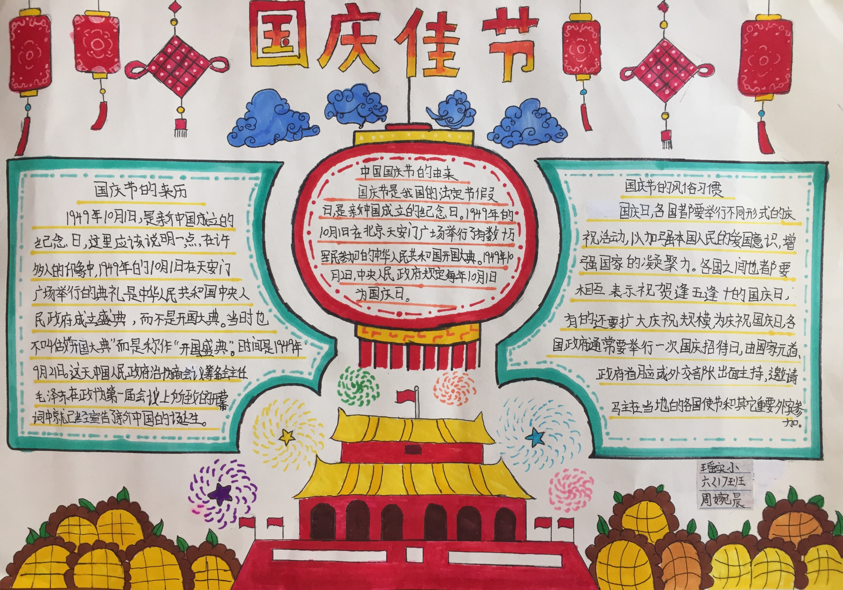 国庆佳节
国庆节的来历
1949年10月1日,是新中国成立的
纪念日,这里应该说明一点,在许
多人的印象中,1949年的10月1日在天安门
广场举行的典礼是中华人民共和国中央人
民政府成立盛典,而不是开国大典。当时也
不叫做"开国大典"而是称作"开国盛典"。时间是1949年
9月21日,这天中国人民政治协商会议筹备会主任
毛泽东在政协第一届会议上所致的开幕
词中就已经宣告了新中国的诞生。
中国国庆节的由来
国庆节是我国的法定节作灰
日,是新中国成立的纪念日。1949年的
10月1日在北京天安门广场举行了有数十万
军民参加的中华人民共和国开国大典。1949年10
月2日,中央人民政府规定每年10月1日
为国庆日。
国庆节的风俗习惯
国庆日,各国都要举行不同形式的庆
祝活动,以加强本国人民的爱国意识,增
强国家的凝聚力。各国之间也都要
相互表示祝贺逢五逢十的国庆日,
有的还要扩大庆祝规模为庆祝国庆日,各
国政府通常要举行一次国庆招待日,由国家元首、
政府首脑或外交部长出面主持,邀请
马主在当地的各国使节和其它重要外宾参
加。
六(17)班
周婉晨